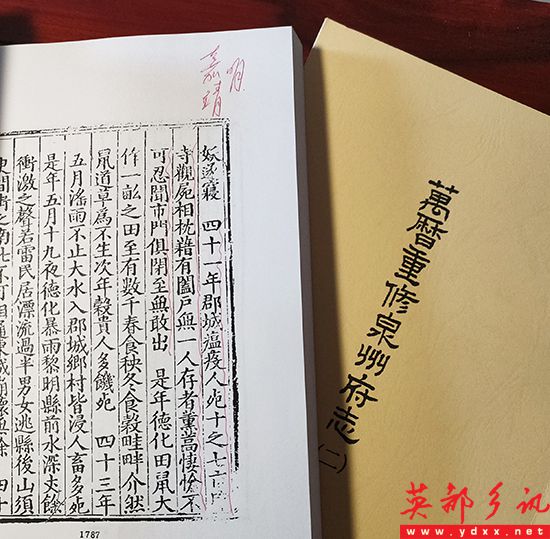 明
嘉靖
妖寢 四十一年郡城瘟疫人死十之七
寺觀屍相枕藉有闔戶無一人存者薰蒿悽愴不
可忍聞市門俱閉至無敢出 是年德化田鼠大
作一畝之田至有數千春食秧冬食穀畦畔介然
鼠道草為不生次年穀貴人多饑死 四十三年
五月淫雨不止大水入郡城鄉村皆浸人畜多死
是年五月十九夜德化暴雨黎明縣前水深丈餘
衝激之聲若雷民居漂流過半男女逃縣後山須
1787
萬曆重修泉州府志(二)
英都乡讯
www.ydxx.net